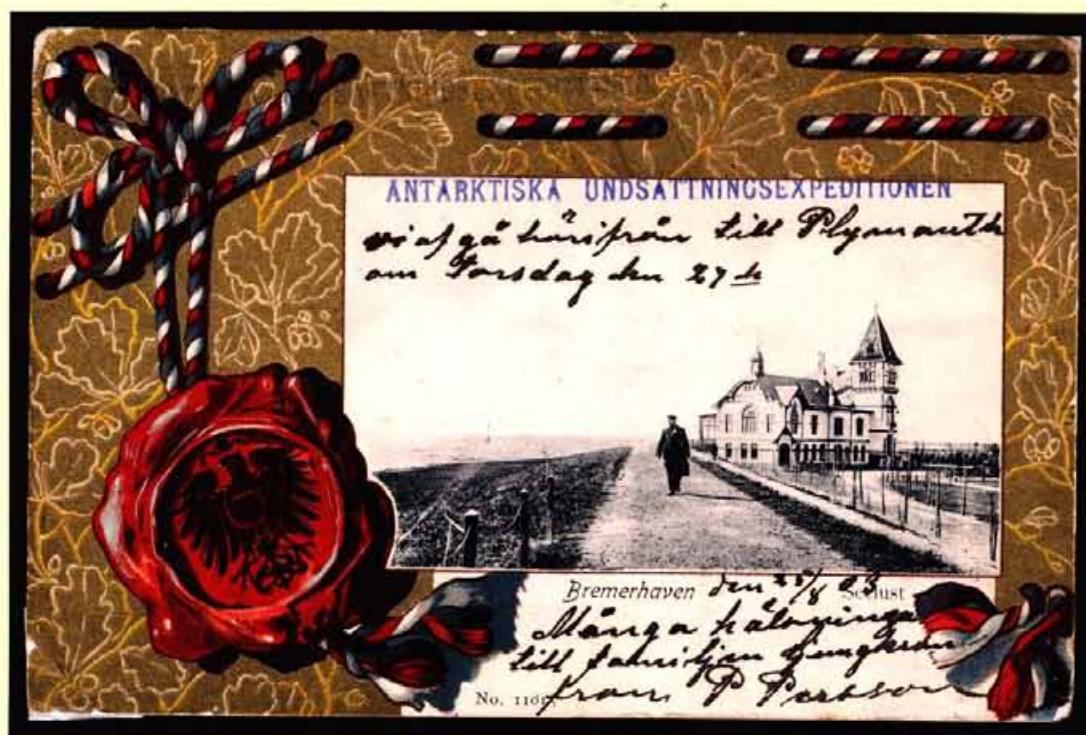 ANTARKTISKA UNDSÄTTNINGSEXPEDITIONEN
vi afgå härifrån till Plymouth
om Torsdag den 27 h
Bremerhaven den 25/8 03 Seelust
Många hälsningar
till familjen
från P Persson
No. 1101